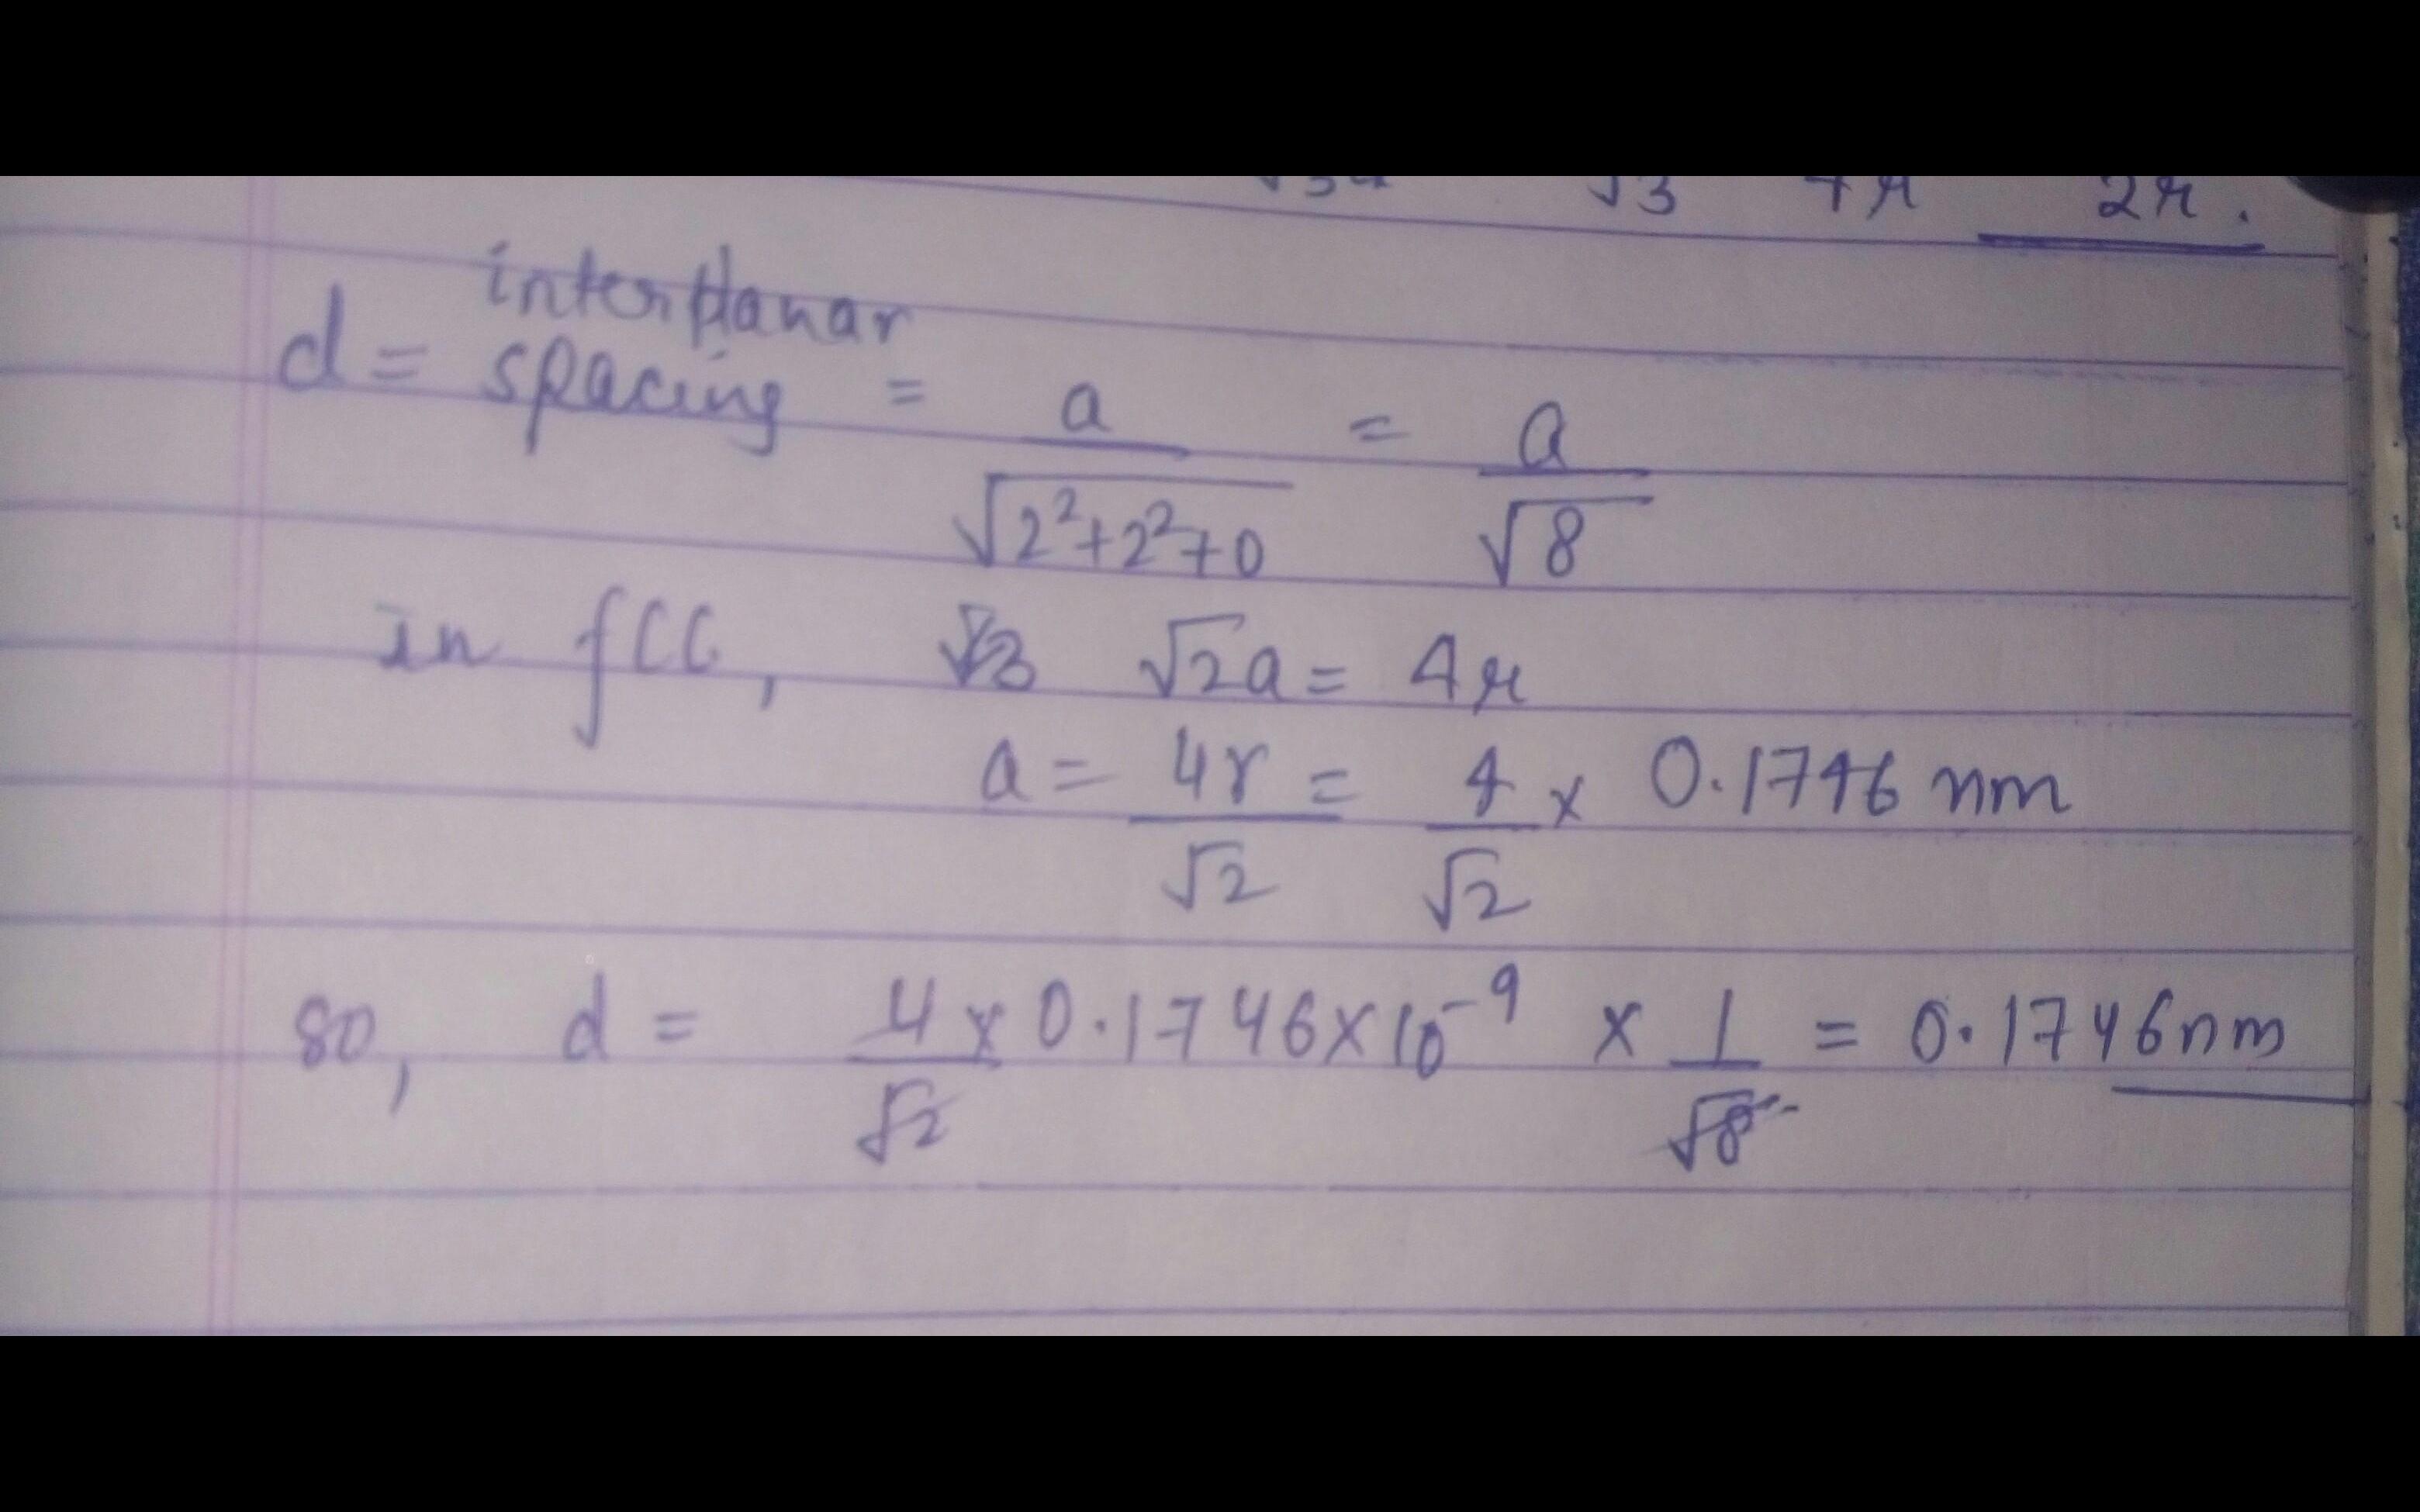 √3 4r 2r.
interplanar
d = spacing = a/√2²+2²+0 = a/√8
in fCC, √2a = 4r
a = 4r/√2 = 4/√2 x 0.1746 nm
so, d = 4/√2 x 0.1746x10⁻⁹ x 1/√8 = 0.1746nm